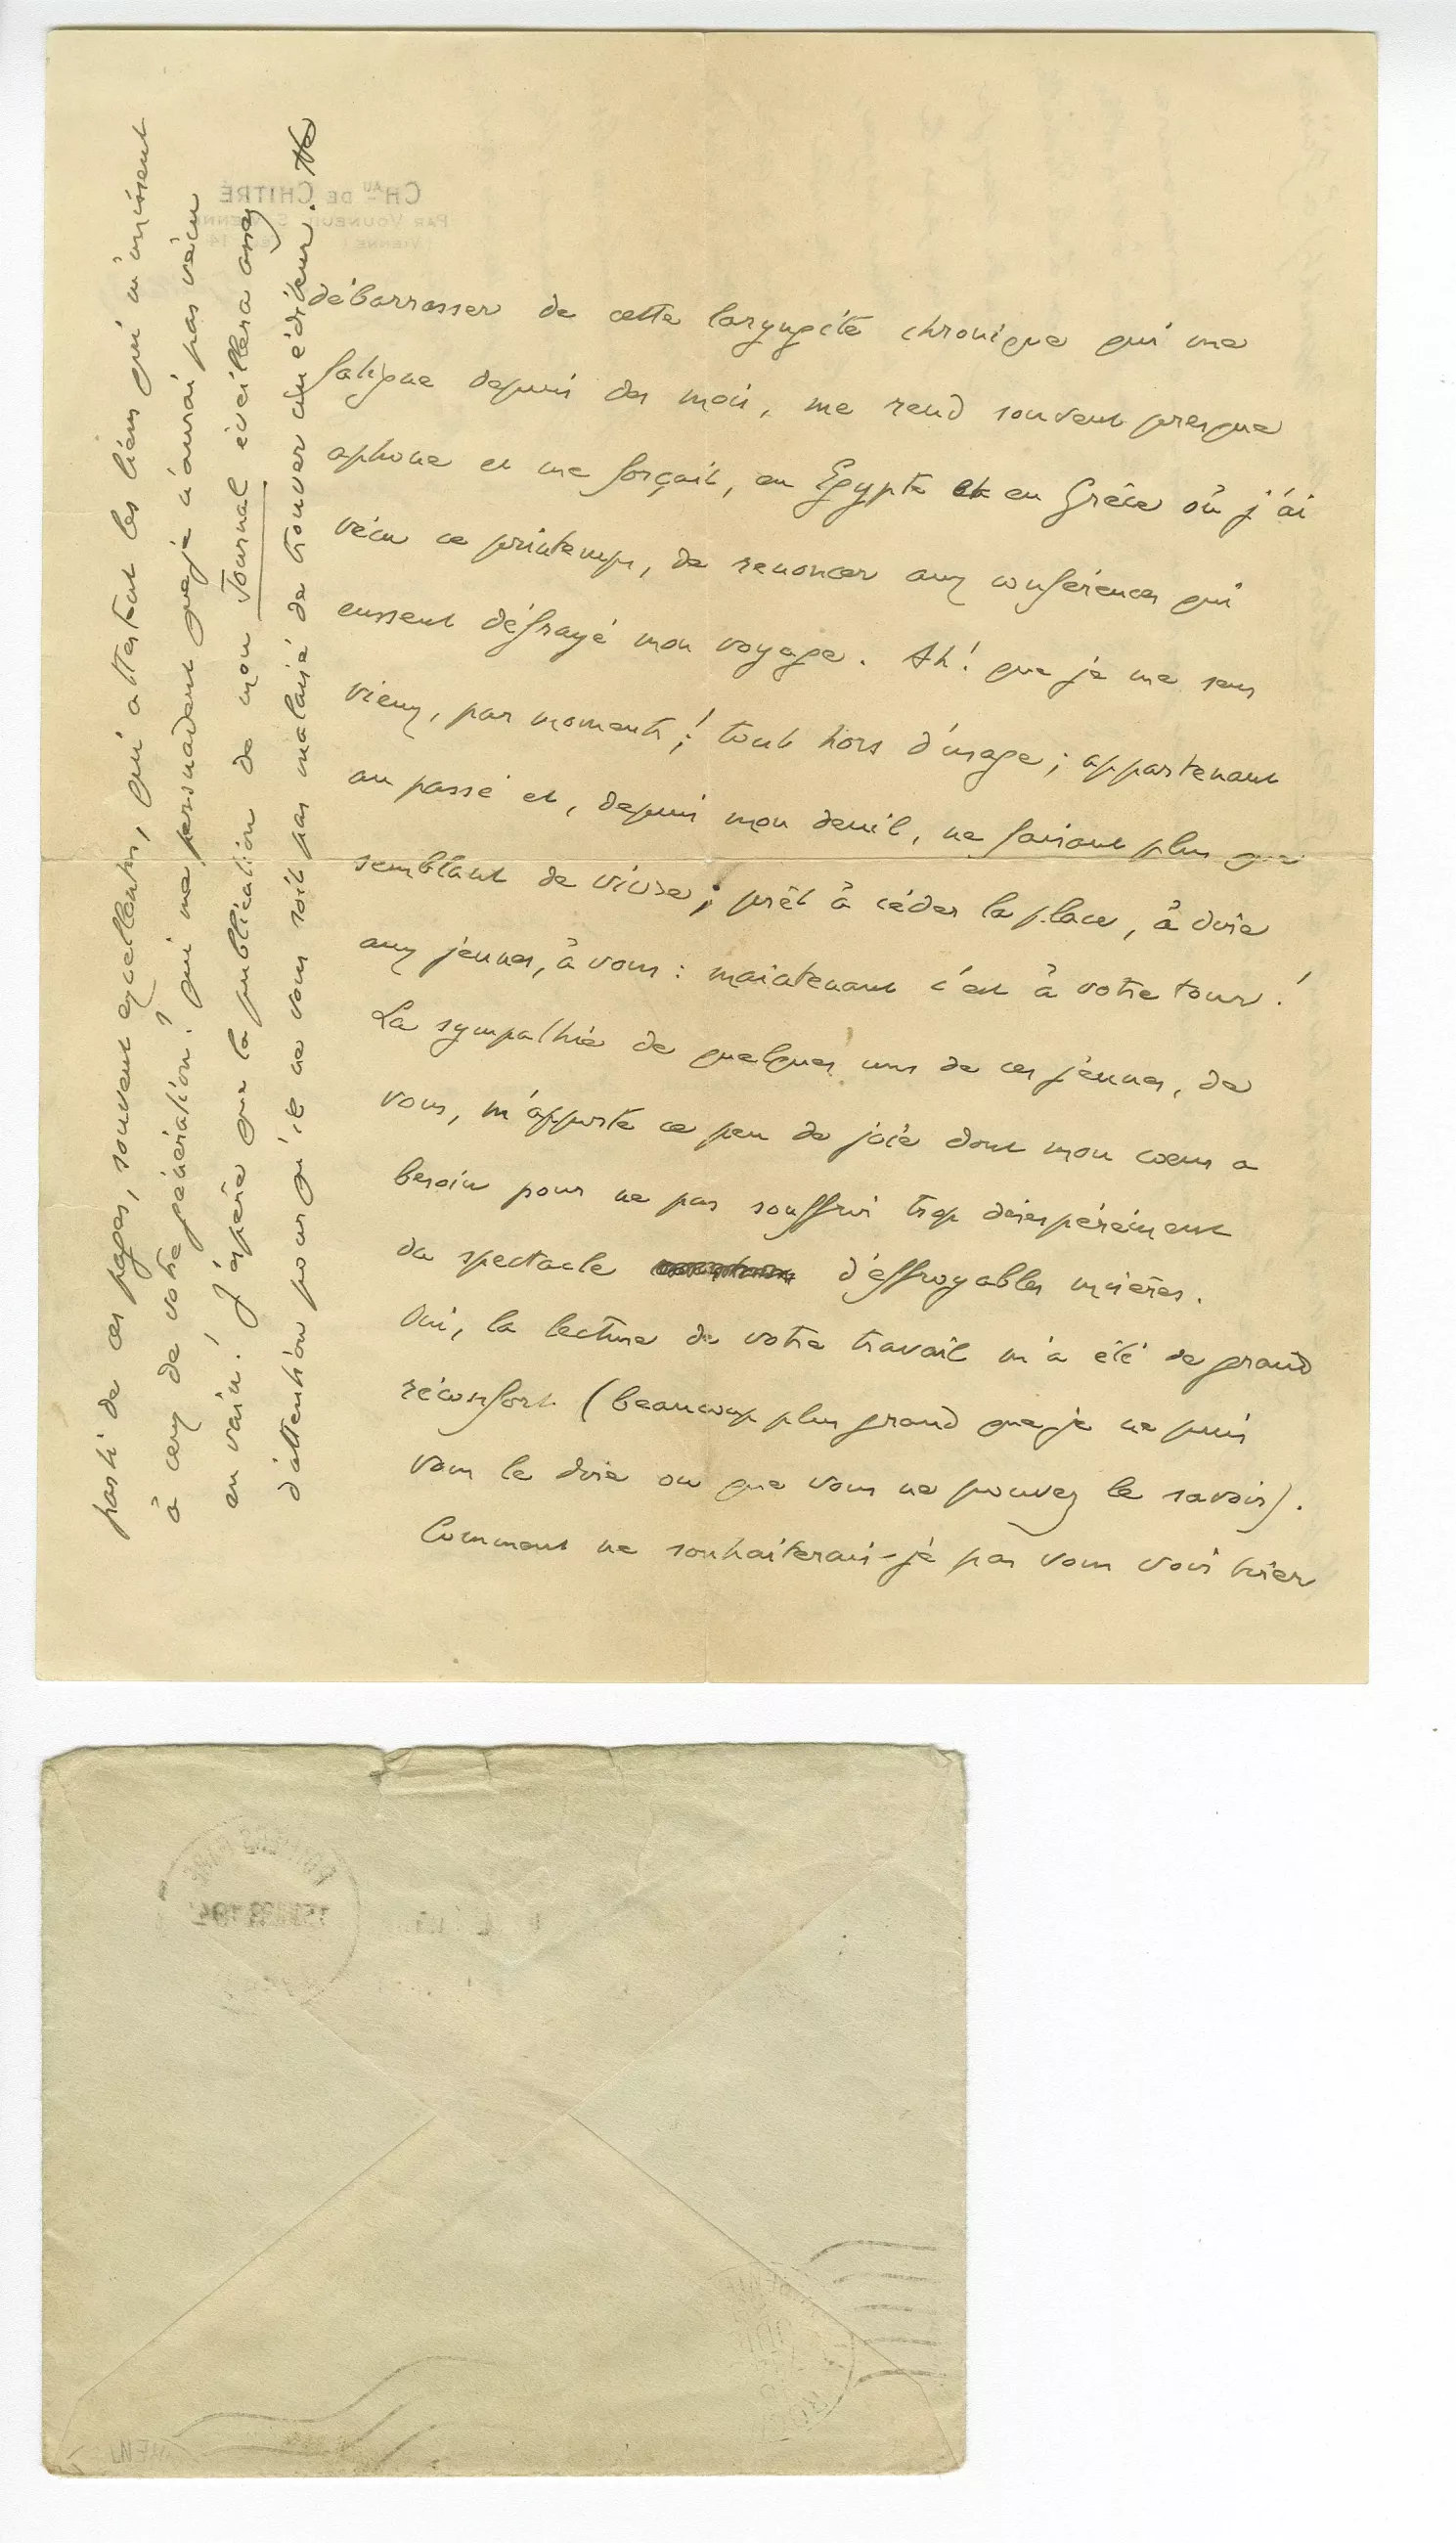 débarrasser de cette laryngite chronique qui me
fatigue depuis des mois, me rend souvent presque
aphone et me forçait, en Egypte et en Grèce où j'ai
vécu ce printemps, de renoncer aux conférences qui
eussent défrayé mon voyage. Ah! que je me sens
vieux, par moments! tout hors d'usage; appartenant
au passé et, depuis mon deuil, ne faisant plus que
semblant de vivre; prêt à céder la place, à dire
aux jeunes, à vous: maintenant c'est à votre tour!
La sympathie de quelques uns de ces jeunes, de
vous, m'apporte ce peu de joie dont mon cœur a
besoin pour ne pas souffrir trop désespérément
du spectacle d'effroyables misères.
Oui, la lecture de votre travail m'a été de grand
réconfort (beaucoup plus grand que je ne puis
vous le dire ou que vous ne pouvez le savoir).
Comment ne souhaiterais-je pas vous voir tirer
parti de ces pages, souvent excellentes, qui attestent les liens qui m'unissent
à ceux de votre génération? qui me persuadent que je n'aurai pas vécu
en vain! J'espère que la publication de mon Journal éveillera assez
d'attention pour qu'il ne vous soit pas malaisé de trouver un éditeur.
CHAU DE CHITRÉ
PAR VOUNEUIL S. VIENNE
(VIENNE)